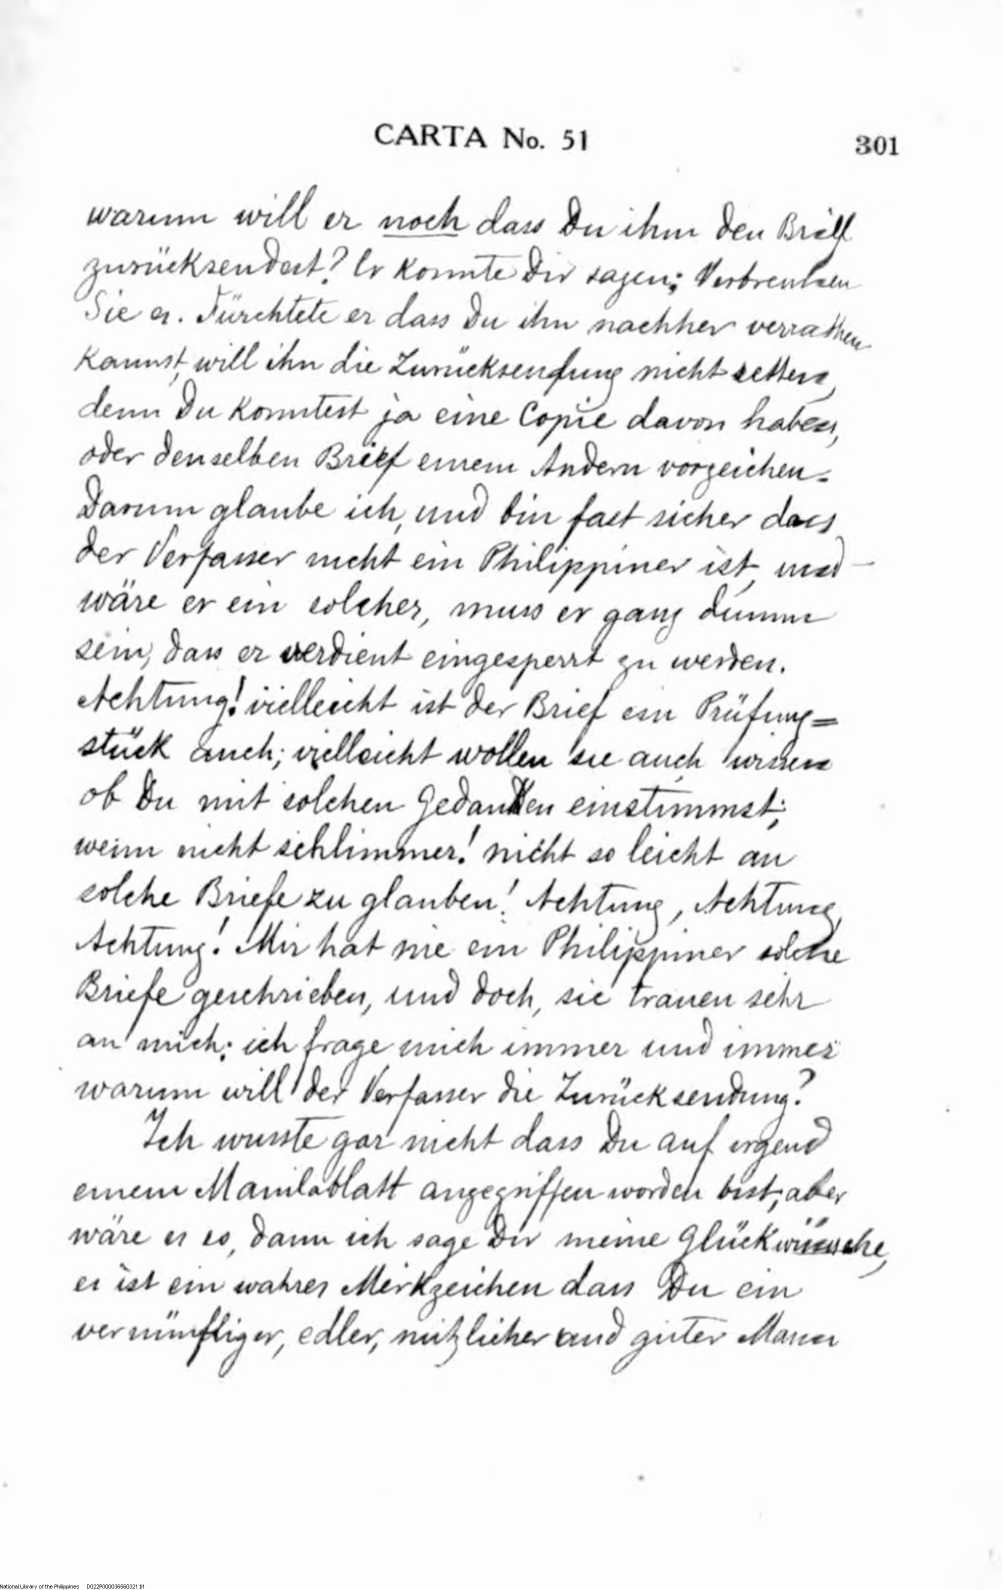 CARTA No. 51
301
warum will er noch dass Du ihm den Brief
zurücksendest? Er konnte Dir sagen: Verbrennen
Sie es. Fürchtete er dass Du ihn nachher verrathen
kannst, will ihn die Zurücksendung nicht retten,
denn Du konntest ja eine Copie davon haben,
oder denselben Brief einem Andern vorzeichen.
Darum glaube ich, und bin fast sicher dass
der Verfasser nicht ein Philippiner ist, und
wäre er ein solcher, muss er ganz dumm
sein, dass er verdient eingesperrt zu werden.
Achtung! vielleicht ist der Brief ein Prüfung=
stück auch; vielleicht wollen sie auch wissen
ob Du mit solchen Gedanken einstimmst;
wenn nicht schlimmer! nicht so leicht an
solche Briefe zu glauben! Achtung, Achtung,
Achtung! Mir hat nie ein Philippiner solche
Briefe geschrieben, und doch, sie trauen sehr
an mich; ich frage mich immer und immer
warum will der Verfasser die Zurücksendung?
Ich wusste gar nicht dass Du auf irgend
einem Manilablatt angegriffen worden bist; aber
wäre es es, dann ich sage Dir meine Glückwünsche,
es ist ein wahres Merkzeichen dass Du ein
vernünftiger, edler, nützlicher und guter Mann
National Library of the Philippines